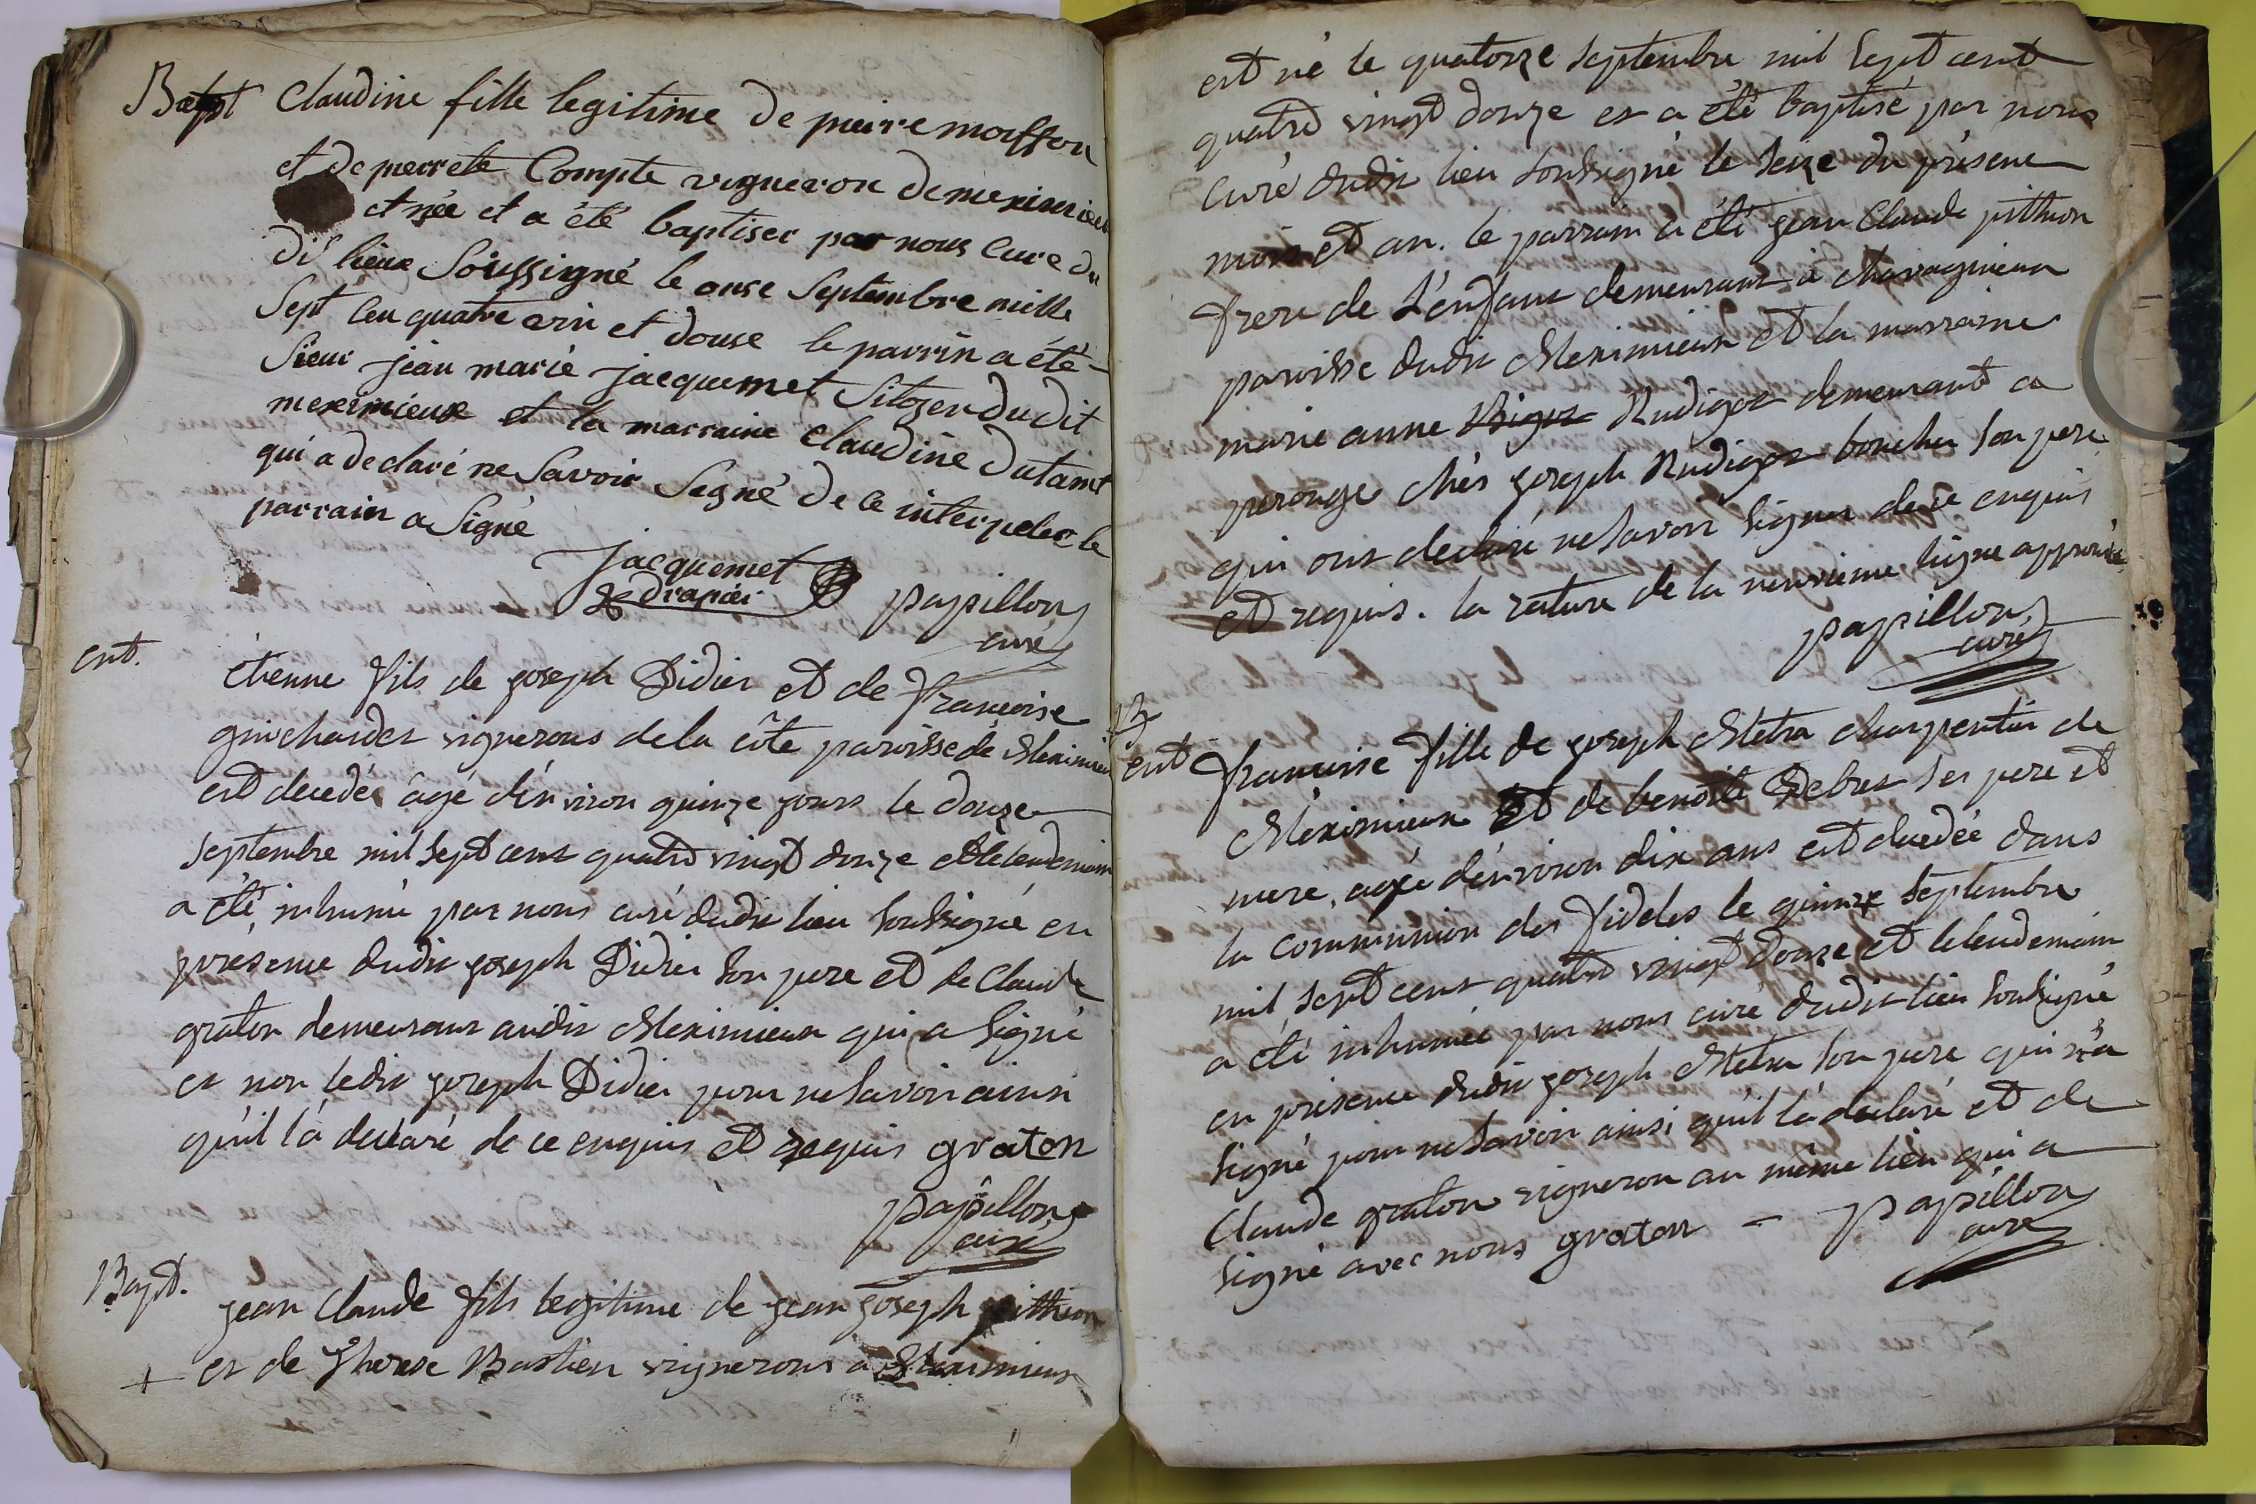 Bapt Claudine fille legitime de pierre moisson
et de pierrete Compte vigneron de meximieux
et née et a été baptiser par nous Curé du
dit lieux Soussigné le onse Septembre mille
Sept Cen quatre vin et douse le parrin a été
Sieur jean marie jacquemet Sitoyen du dit
meximieux et la marraine Claudine Dutaint
qui a declaré ne Savoir Segné de ce interpeler le
parrain a Signé
jacquemet
drapier
papillon
curé
ent.
étienne fils de joseph Didier et de francoise
guichardet vignerons de la côte paroisse de Meximieux
est decedé âgé d'environ quinze jours le douze
septembre mil sept cent quatre vingt douze et le lendemain
a été inhumé par nous curé dudit lieu soussigné en
présence dudit joseph Didier son pere et de Claude
graton demeurant audit Meximieux qui a signé
et non ledit joseph Didier pour ne savoir ainsi
qu'il l'a declaré de ce enquis et requis graton
papillon
curé
Bapt.
jean Claude fils legitime de jean joseph pitthion
+ et de therese Bastien vignerons a Meximieux
est né le quatorze septembre mil sept cent
quatre vingt douze et a été baptisé par nous
curé dudit lieu soussigné le seize du présent
mois et an. le parrain a été jean Claude pitthion
frere de l'enfant demeurant à Chavagnieux
paroisse dudit Meximieux et la marraine
marie anne Rudigoz demeurant a
perouge chès joseph Rudigoz boucher son pere
qui ont declaré ne savoir signer de ce enquis
et requis. la rature de la neuvieme ligne approuvée
papillon
curé
B
ent francoise fille de joseph Metra charpentier de
Meximieux Et de benoite Debres ses pere et
mere, agée d'environ dix ans est decedée dans
la communion des fideles le quinze septembre
mil sept cent quatre vingt douze et le lendemain
a été inhumée par nous curé dudit lieu soussigné
en présence dudit joseph Metra son pere qui n'a
signé pour ne savoir ainsi qu'il l'a declaré et de
Claude graton vigneron au même lieu qui a
signé avec nous graton - papillon
curé